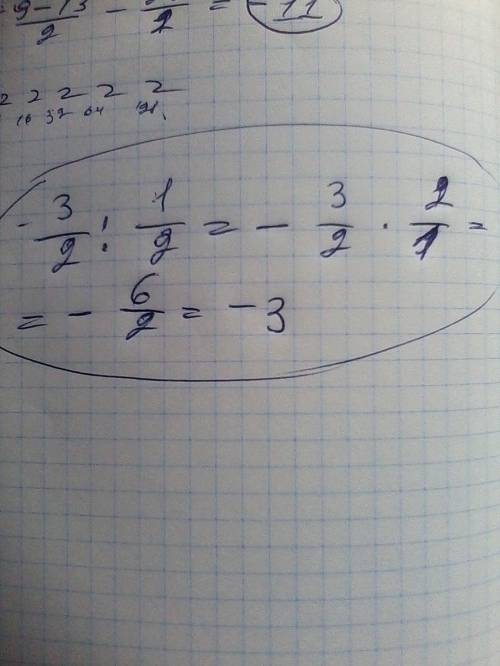 = \frac{9-13}{2} - \frac{}{2} = -11
2 2 2 2 2
16 32 64 128
- \frac{3}{2} : \frac{1}{2} = - \frac{3}{2} · \frac{2}{1} =
= - \frac{6}{2} = -3